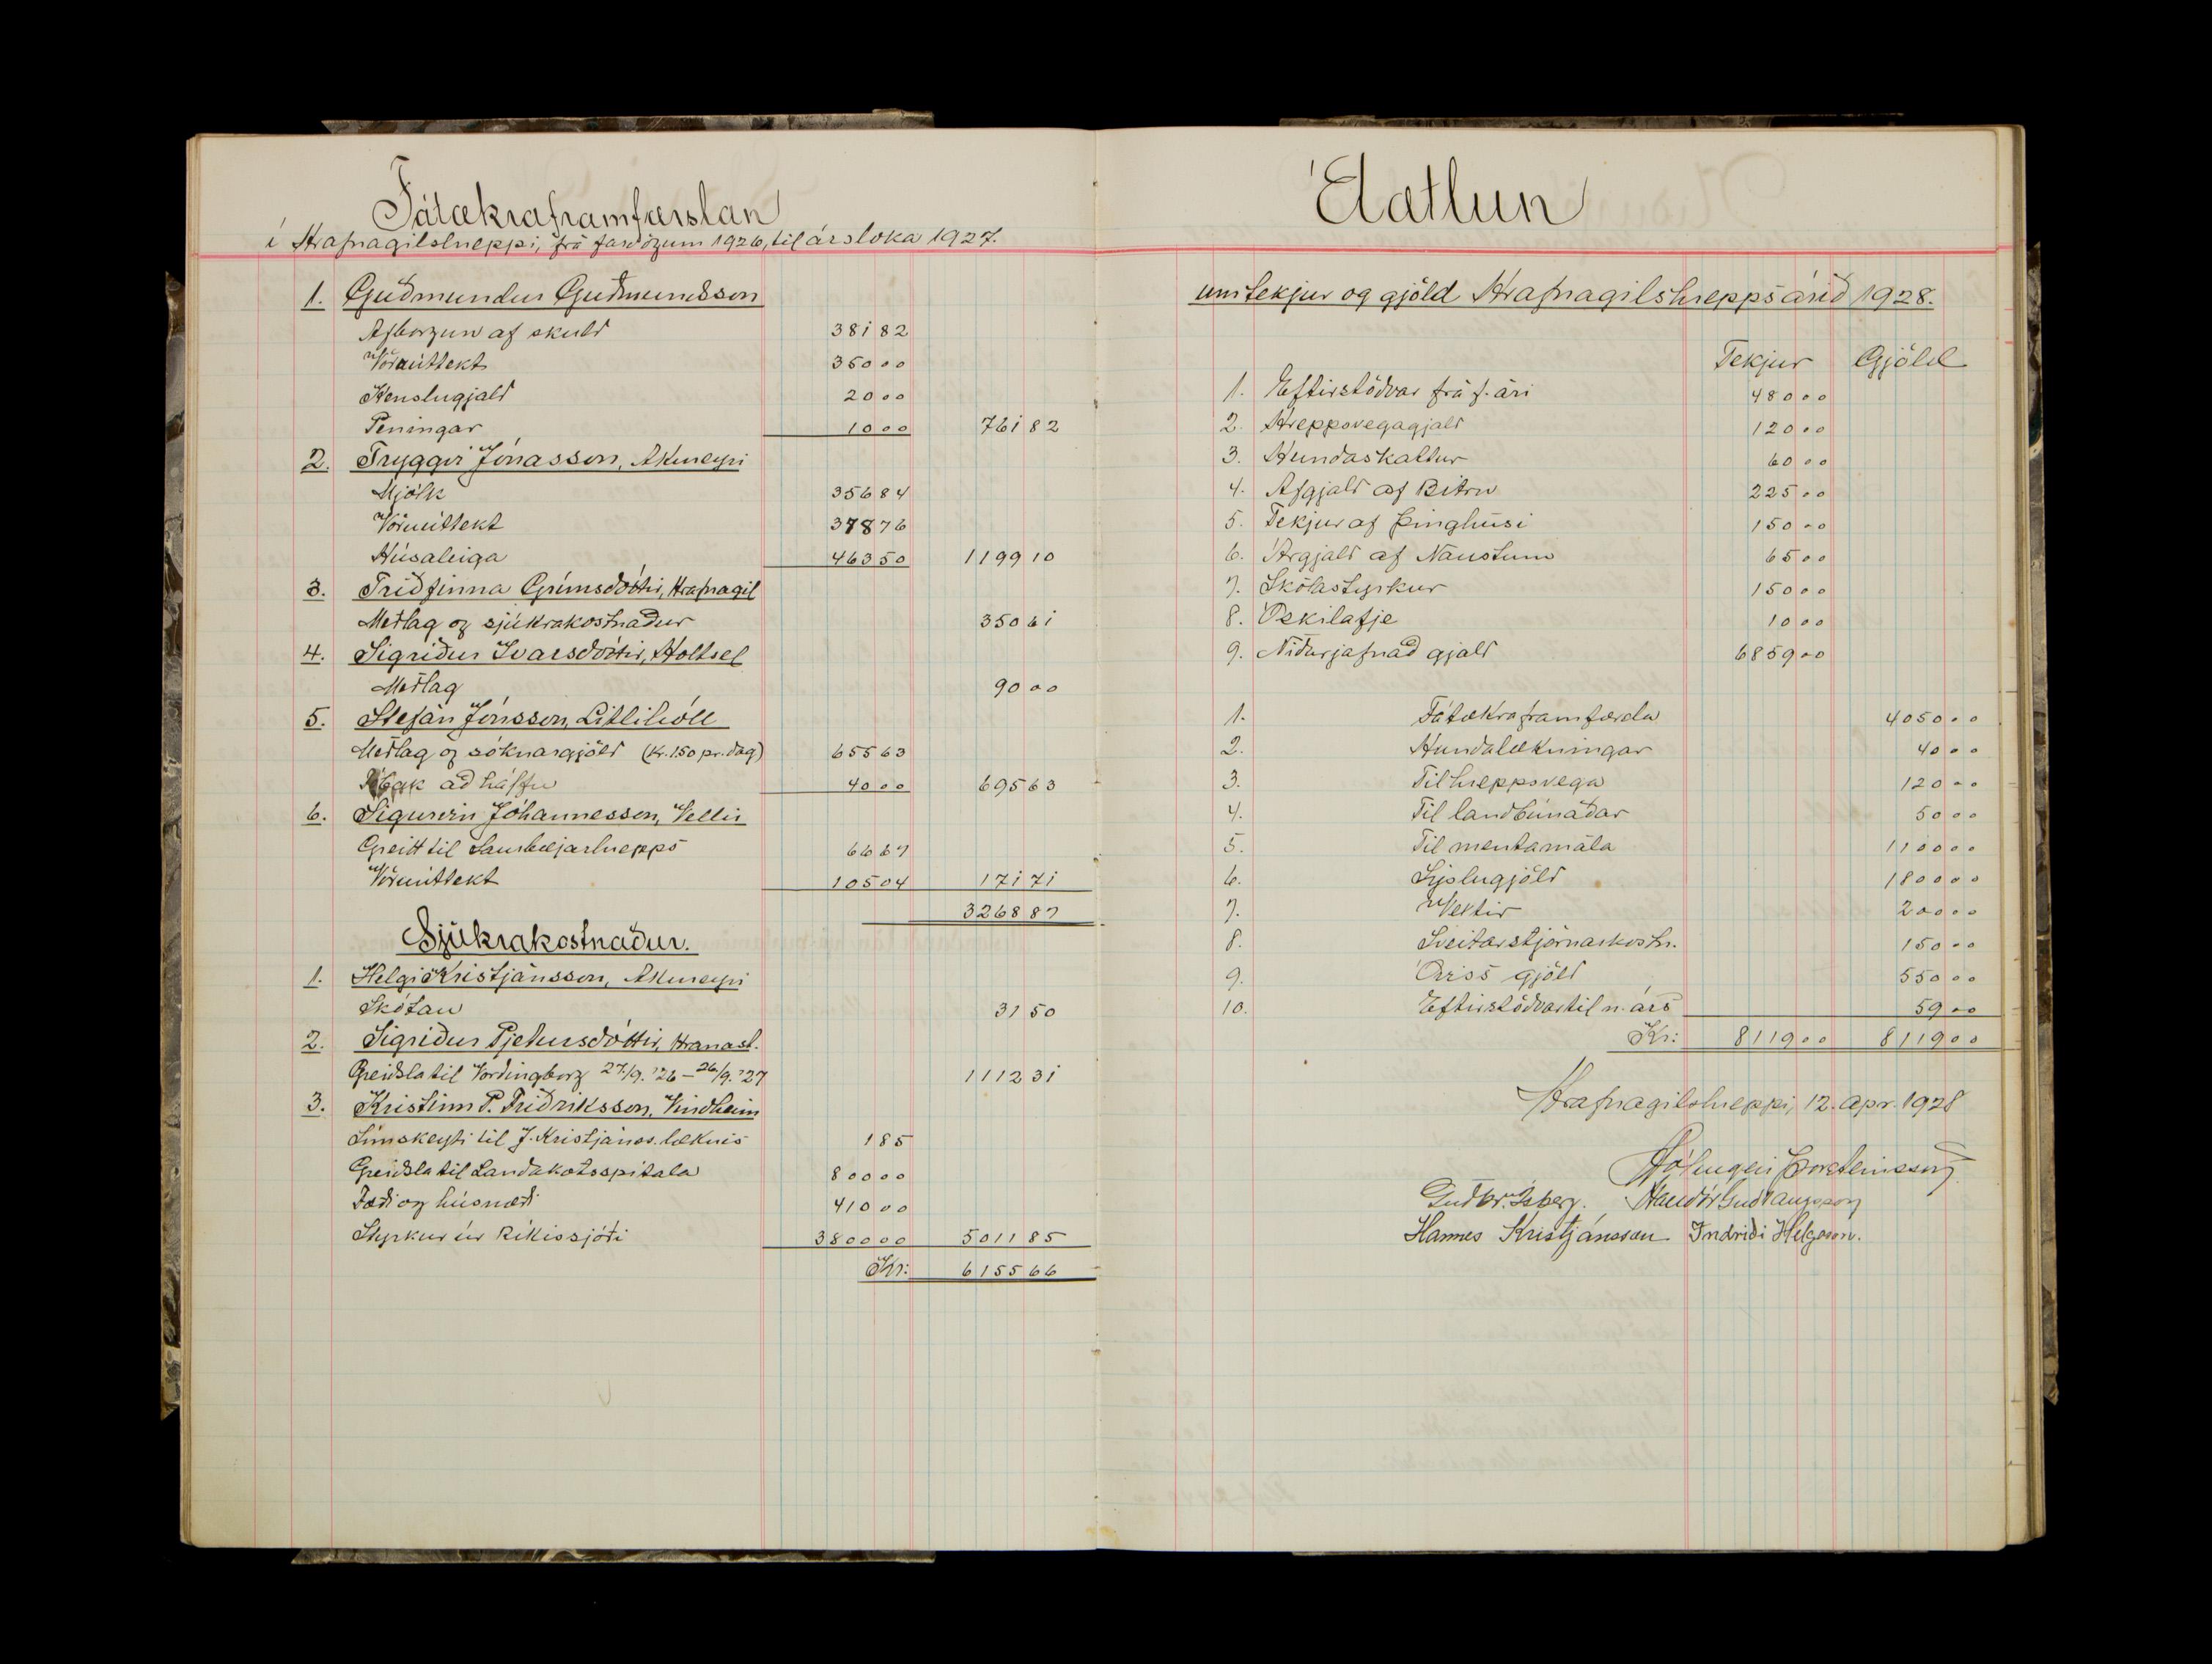 Fátækraframfærslan
í Hrafnagilshreppi, frá fardögum 1926, til ársloka 1927.
1. Guðmundur Guðmundsson
Afborgun af skuld 381 82
Vöruúttekt 350 00
Kenslugjald 20 00
Peningar 10 00 761 82
2. Tryggvi Jónasson, Akureyri
Mjólk 356 84
Vöruúttekt 378 76
Húsaleiga 463 50 1199 10
3. Friðfinna Grímsdóttir, Hrafnagil
Meðlag og sjúkrakostnaður 350 61
4. Sigríður Ívarsdóttir, Holtsel
Meðlag 90 00
5. Stefán Jónsson, Litlihóll
Meðlag og sóknargjöld (Kr. 1.50 pr. dag) 655 63
að hálfu 40 00 695 63
6. Sigurvin Jóhannesson, Vellir
Greitt til Saurbæjarhrepps 66 67
Vöruúttekt 105 04 171 71
3268 87
Sjúkrakostnaður.
1. Helgi Kristjánsson, Akureyri
Skótau 31 50
2. Sigríður Pjetursdóttir, Hranast.
Greiðsla til Vordingborg 27./9. '26 – 26/9. '27 1112 31
3. Kristinn P. Friðriksson, Vindheim
Símskeyti til J. Kristjánss. læknis 1 85
Greiðsla til Landakotsspítala 800 00
Fæði og húsnæði 410 00
Styrkur úr Ríkissjóði 3800 00 5011 85
Kr: 6155 66
Áætlun
um tekjur og gjöld Hrafnagilshrepps árið 1928.
Tekjur Gjöld
1. Eftirstöðvar frá f. ári 480 00
2. Hreppsvegagjald 120 00
3. Hundaskattur 60 00
4. Afgjald af Bitru 225 00
5. Tekjur af þinghúsi 150 00
6. Árgjald af Naustum 65 00
7. Skólastyrkur 150 00
8. Óskilafje 10 00
9. Niðurjafnað gjald 6859 00
1. Fátækraframfærsla 4050 00
2. Hundalækningar 40 00
3. Til hreppsvega 120 00
4. Til landbúnaðar 50 00
5. Til mentamála 1100 00
6. Sýslugjöld 1800 00
7. Vextir 200 00
8. Sveitarstjórnarkostn. 150 00
9. Óviss gjöld 550 00
10. Eftirstöðvar til n. árs 59 00
Kr: 8119 00 8119 00
Hrafnagilshreppi, 12. apr. 1928
Hólmgeir Þorsteinsson
Guðbr. Ísberg. Halldór Guðlaugsson
Hannes Kristjánsson Indriði Helgason.